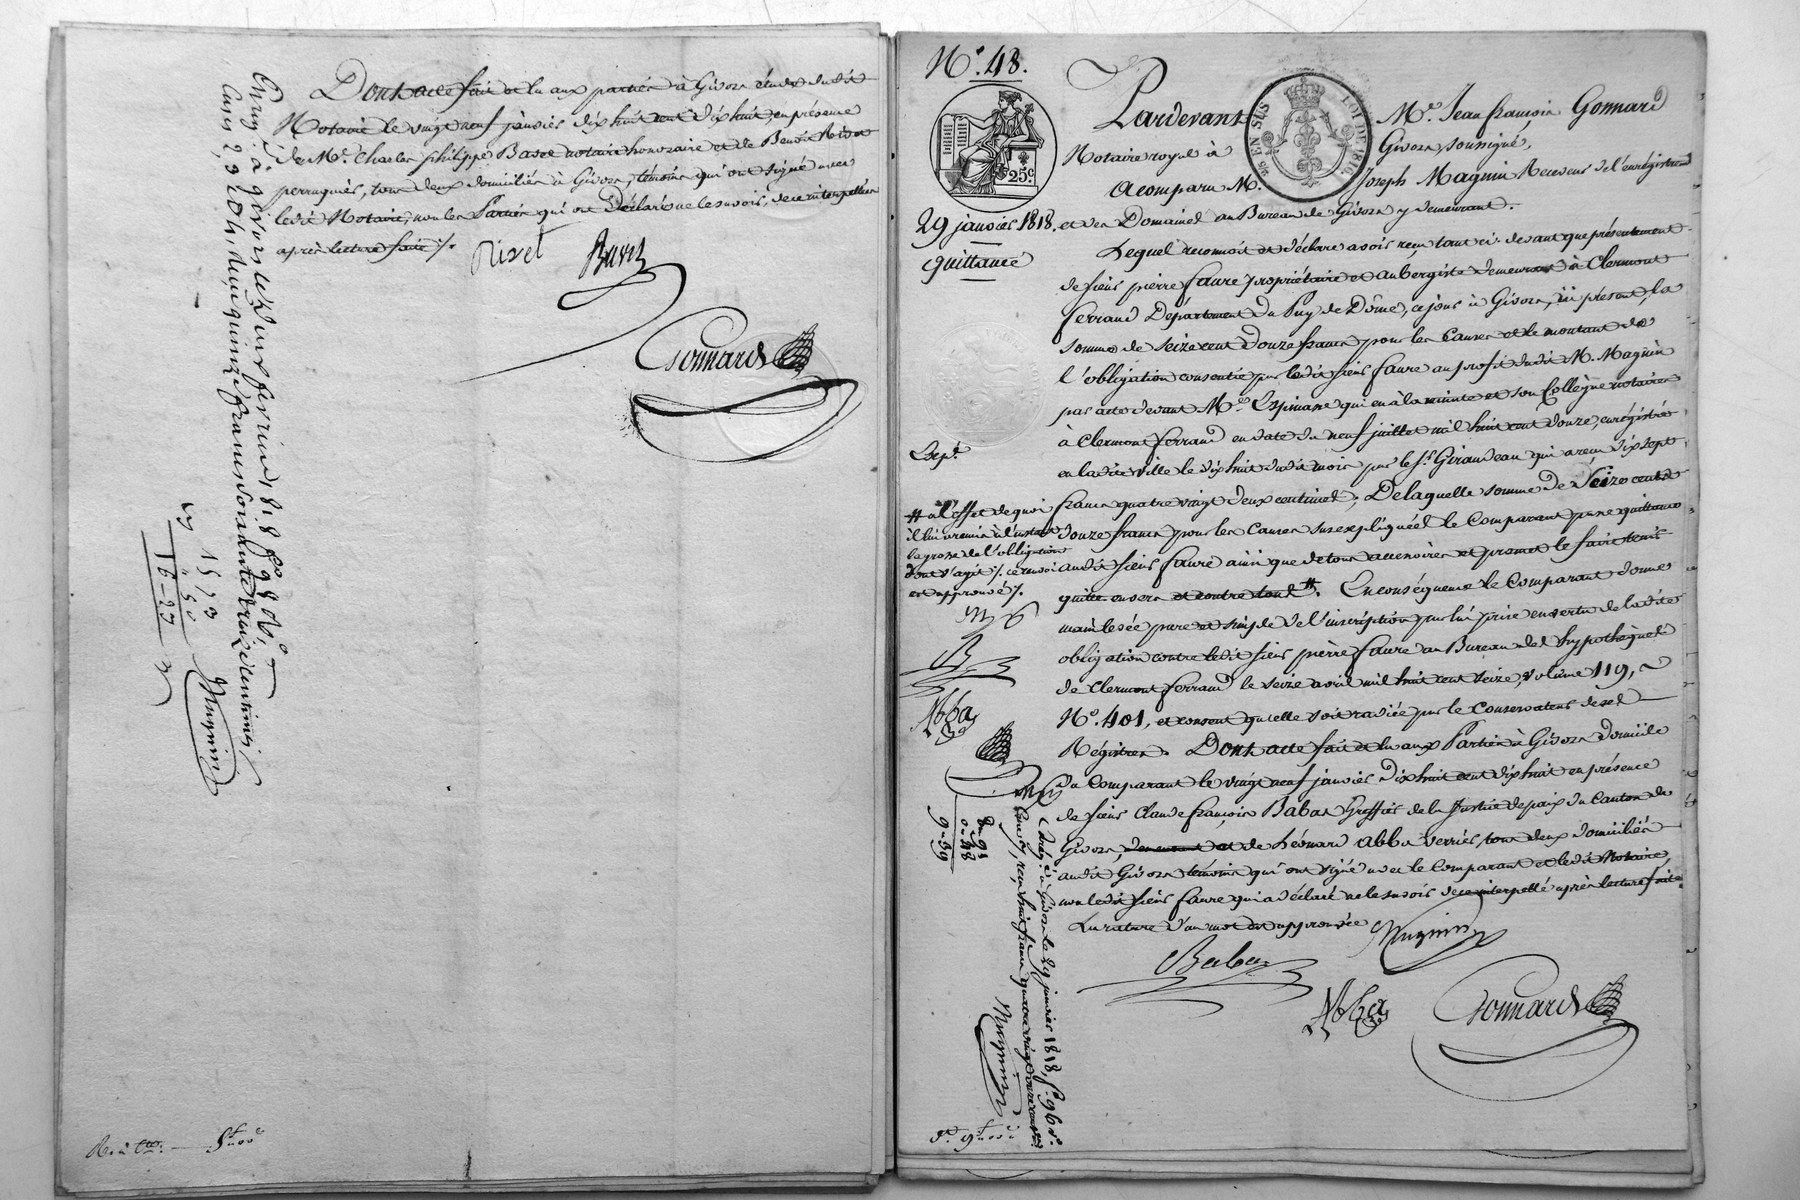 Dont acte fait et lu aux parties à Givors étude dudit
Notaire le vingt neuf janvier dix huit cent dix huit, en présence
de Me. Charles Philippe Basset notaire honoraire et de Benoit Rivet
perruquier, tous deux domiciliés à Givors, témoins qui ont signé avec
ledit Notaire, non les Parties qui ont déclaré ne le savoir, de ce interpellées
après lecture faite ./.
Rivet
Gonnard
Enreg. à Givors le deux février 1818 fo. 98
quinze francs soixante treize centimes
Magnin
15, 73
" 50
16 - 23
No. 48.
25c.
25 EN SUS
LOI DE 1816.
29 janvier 1818.
quittance
Pardevant Me. Jean françois Gonnard
Notaire royal à Givors soussigné,
a comparu M. Joseph Magnin Receveur de l'enregistrement
et des Domaines au Bureau de Givors y demeurant.
Lequel reconnait et déclare avoir reçu tant ci-devant que présentement
de sieur pierre faure propriétaire et aubergiste demeurant à Clermont
ferrand Département du Puy de Dôme, ce jour à Givors, ici présent, la
somme de seize cent douze francs pour les causes et le montant de
l'obligation consentie par ledit sieur faure au profit dudit M. Magnin
par acte devant Me. Espinasse qui en a la minute et son Collègue notaires
à Clermont ferrand en date du neuf juillet mil huit cent douze, enregistré
en ladite ville le dix huit dudit mois par le Sr. Giraudeau qui a reçu dix sept
francs quatre vingt deux centimes. De laquelle somme de Seize cents
douze francs pour les Causes susexpliquées le Comparant passe quittance
audit sieur faure ainsi que de tous accessoires et promet le faire tenir
quitte envers et contre tous #. En conséquence le Comparant donne
mainlevée pure et simple de l'inscription par lui prise en vertu de ladite
obligation contre ledit sieur pierre faure au Bureau des hypothèques
de Clermont ferrand le seize avril mil huit cent seize, volume 119,
No. 401, et consent qu'elle soit radiée par le Conservateur de ses
Régistres. Dont acte fait et lu aux Parties à Givors domicile
du Comparant le vingt neuf janvier dix huit cent dix huit en présence
de sieur Claude françois Babat Greffier de la Justice de paix du Canton de
Givors, demeurant et de Léonard Abba verrier, tous deux domiciliés
audit Givors témoins qui ont signé avec le Comparant et ledit Notaire,
non ledit sieur faure qui a déclaré ne le savoir de ce interpellé après lecture faite.
La rature d'un mot est approuvée
Magnin
Abba
Gonnard
Expé.
# à l'effet de quoi
il lui a remis à l'instant
la grosse de l'obligation
dont s'agit ./. ce renvoi
est approuvé ./.
Abba
9 - 39
Enreg. à Givors le 29 janvier 1818, fo. 96
reçu huit francs quatre vingt onze
Magnin